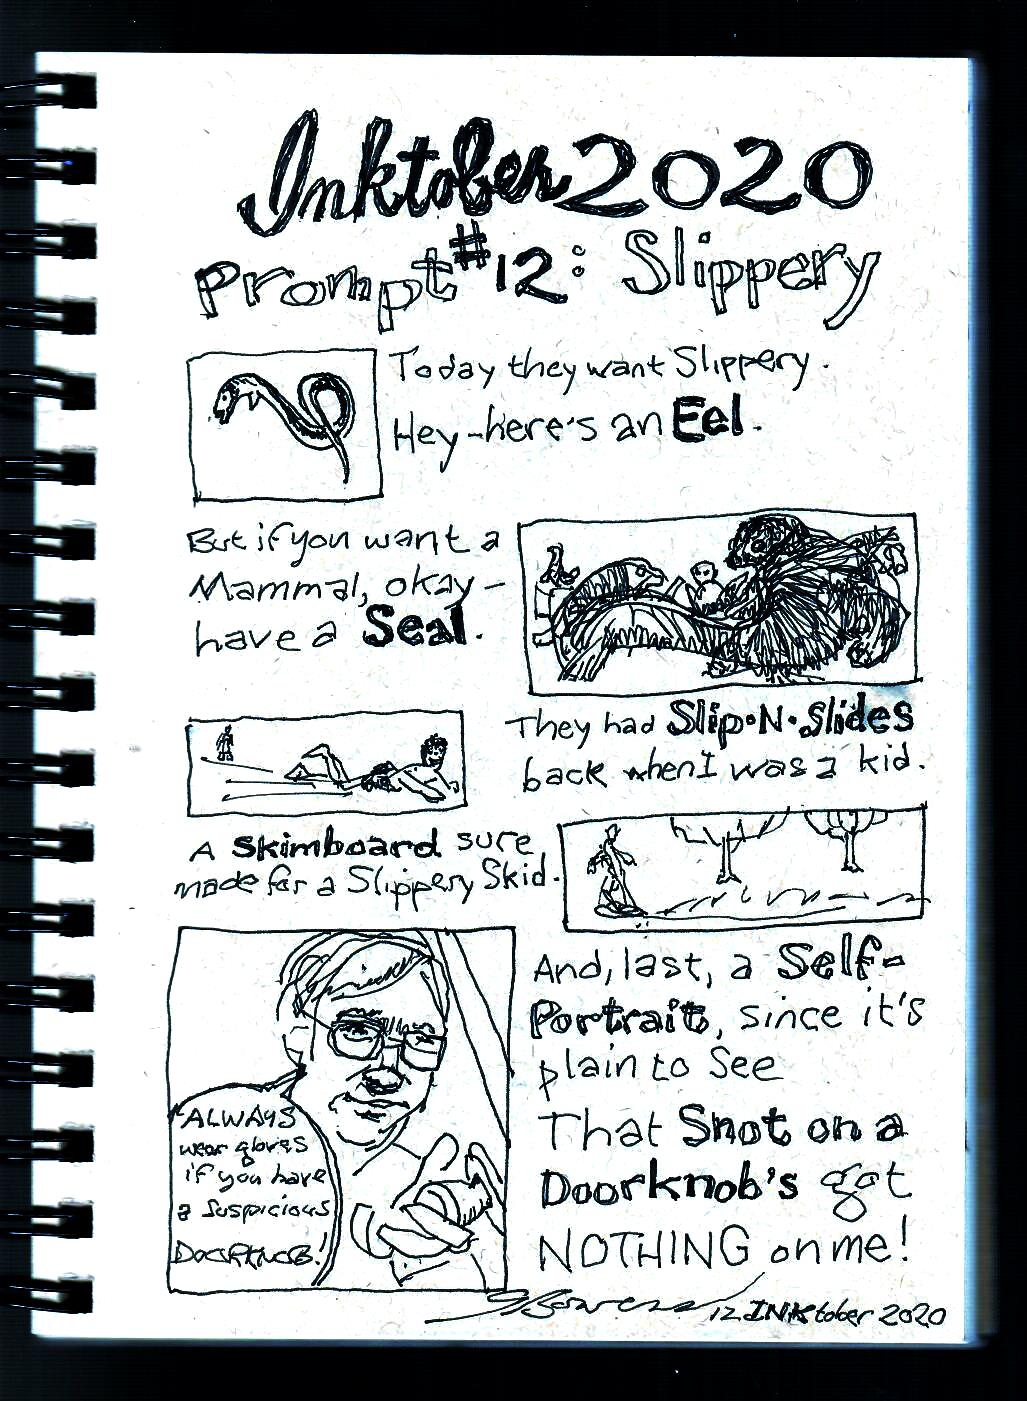 Inktober 2020
Prompt #12: Slippery
Today they want Slippery.
Hey-here's an Eel.
But if you want a
Mammal, okay-
have a Seal.
They had Slip·N·Slides
back when I was a kid.
A Skimboard sure
made for a Slippery Skid.
And, last, a Self-
Portrait, since it's
plain to See
That Snot on a
Doorknob's got
NOTHING on me!
ALWAYS
wear gloves
if you have
a suspicious
DOORKNOB!
12 INKtober 2020